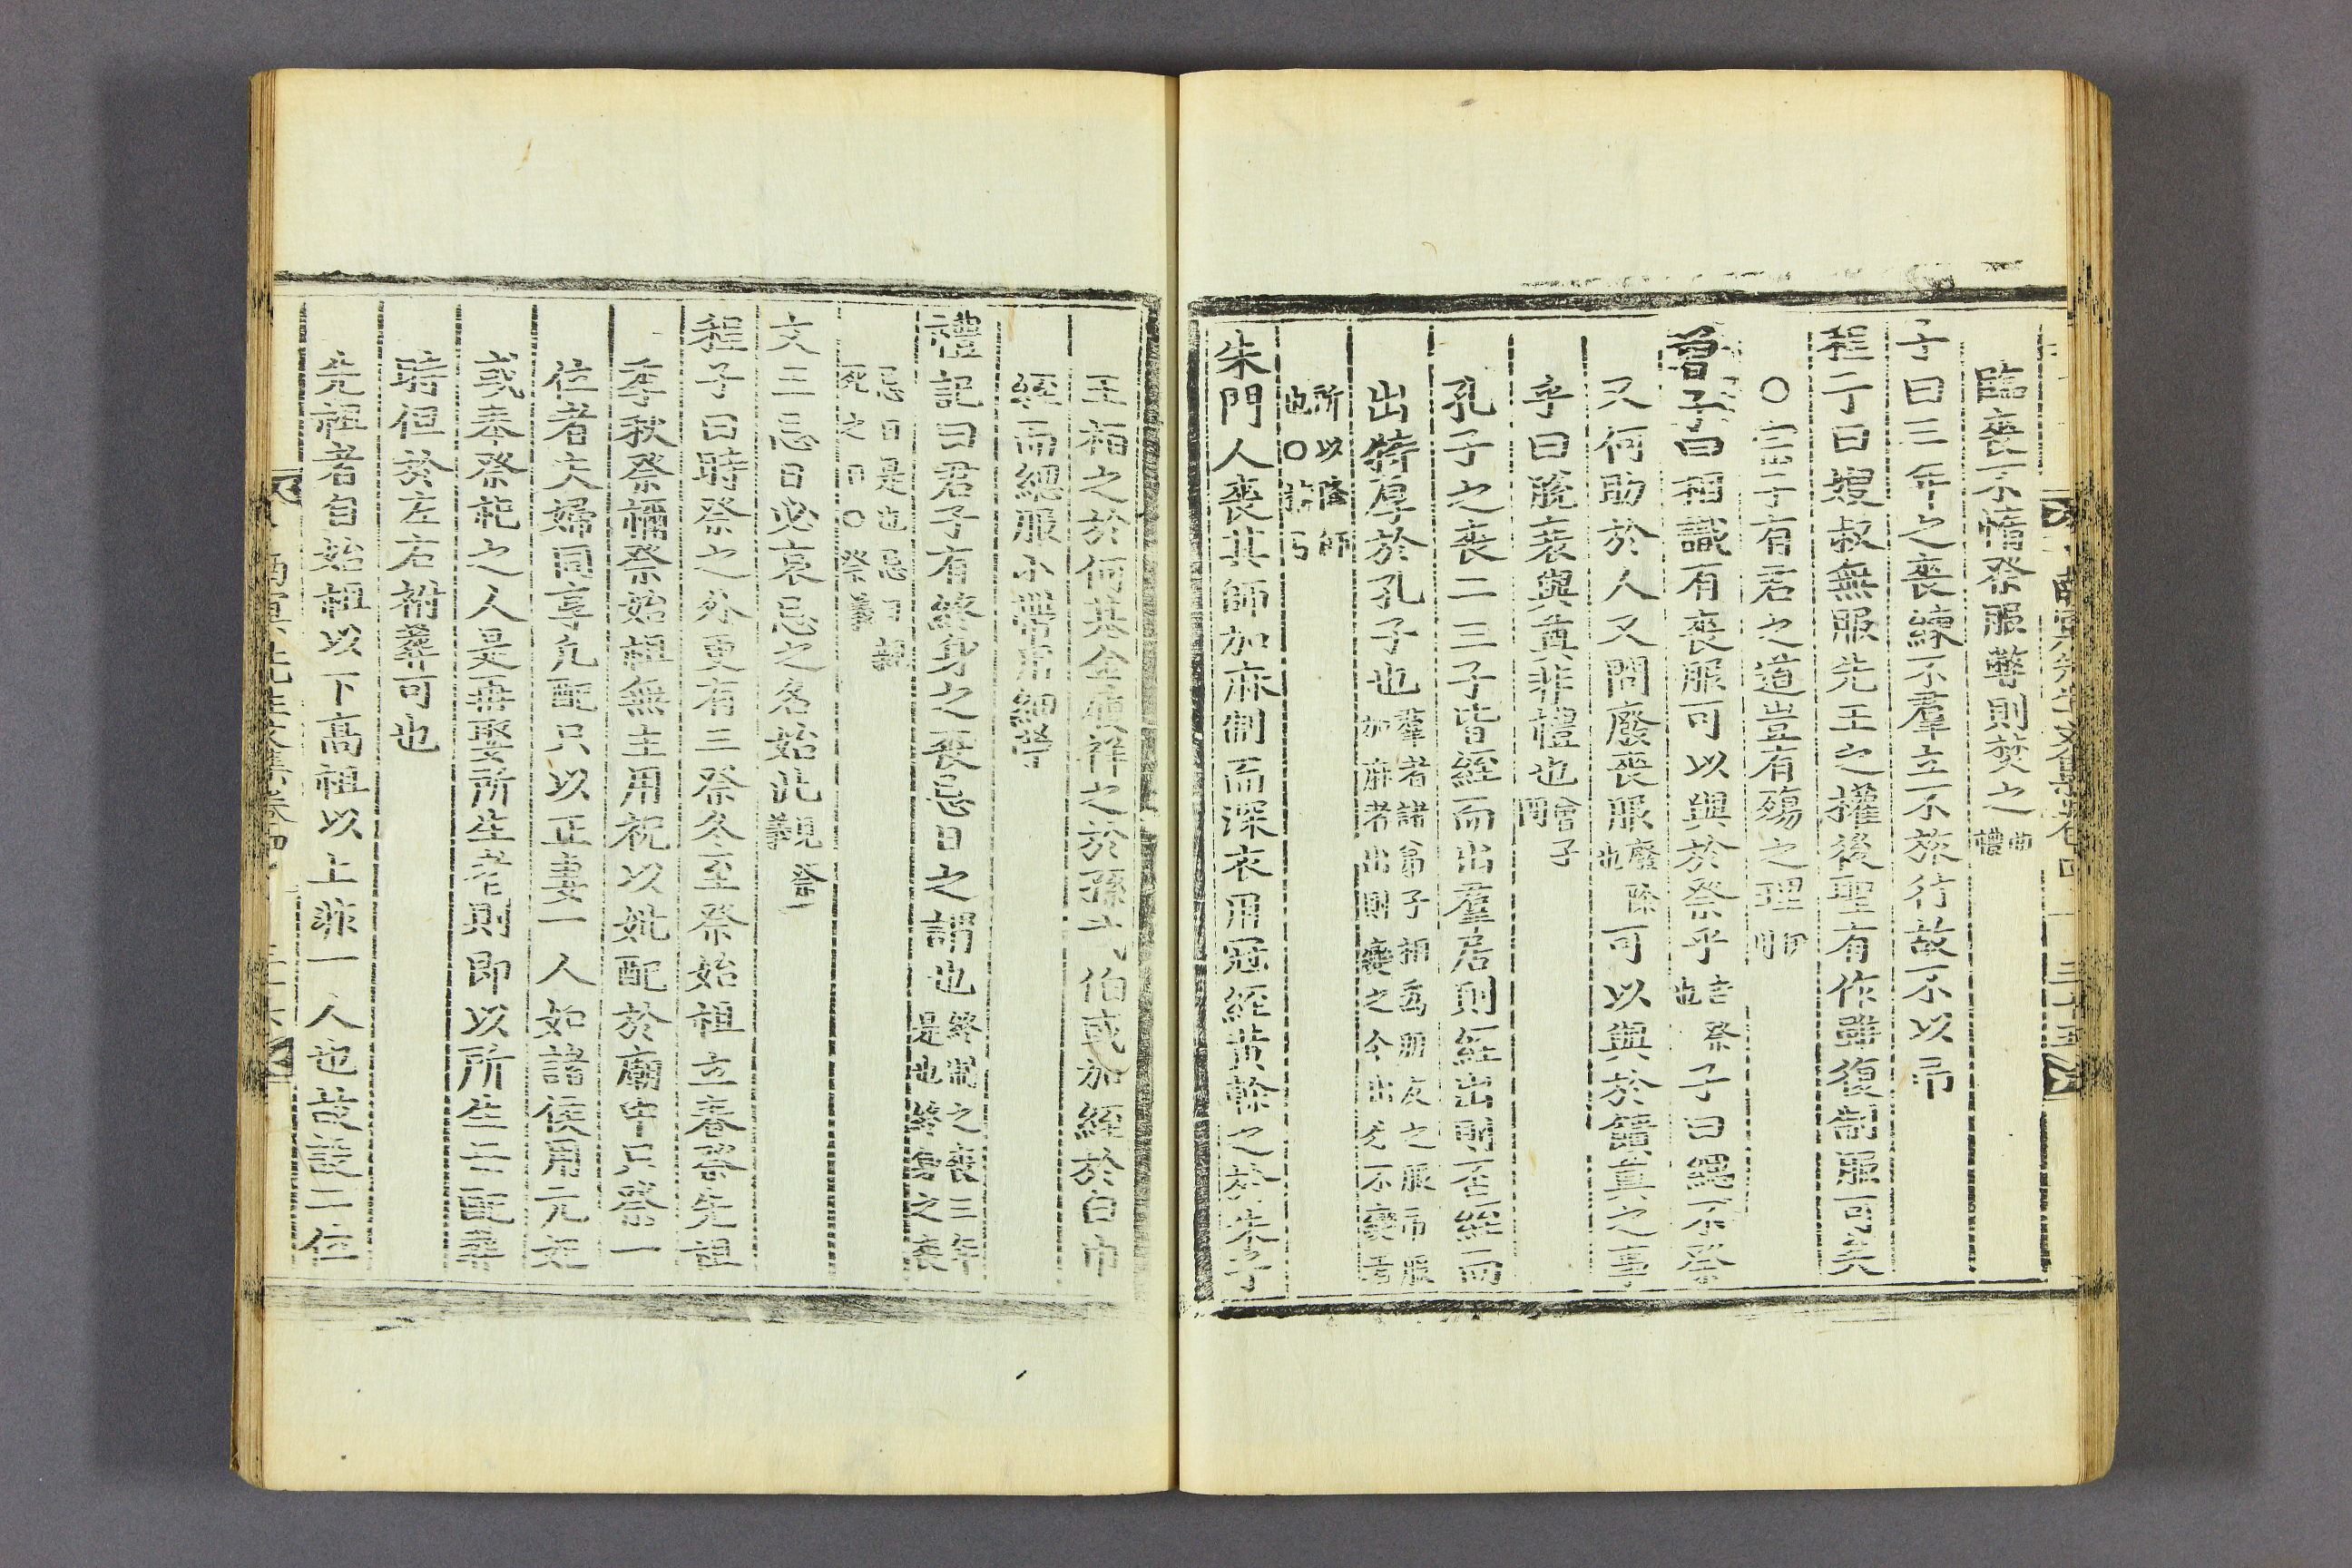 臨喪不惰祭服弊則焚之曲禮
子曰三年之喪練不羣立不旅行故不以弔
程子曰嫂叔無服先王之權後聖有作雖復制服可矣
○宗子有君之道豈有殤之理
曾子曰相識有喪服可以與於祭乎言祭也子曰緦不祭
又何助於人又問廢喪服廢除也可以與於饋奠之事
乎曰脫衰與奠非禮也曾子問
孔子之喪二三子皆絰而出羣居則絰出則否絰而
出特厚於孔子也羣者諸弟子相爲朋友之服弔服加麻者出則變之今出外不變者
所以隆師也○
朱門人喪其師加麻制而深衣用冠絰黃榦之於朱子
王栢之於何基金履祥之於 伯或加絰於白巾
絰而緦服小帶用細苧
禮記曰君子有終身之喪忌日之謂也祭 之喪三年是也終身之喪
忌日是也忌日親死之日○祭義
文王忌日必哀忌之名始此親祭一
程子曰時祭之外更有三祭冬至祭始祖立春祭先祖
季秋祭禰祭始祖無主用祝以妣配於廟中只祭一
位者夫婦同享允配只以正妻一人如諸侯用元妃
或奉祭祀之人是再娶所生者則卽以所生母配葬
時但於左右祔葬可也
先祖者自始祖以下高祖以上非一人也故設二位